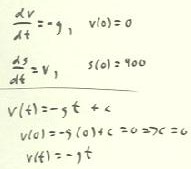 dv/dt = -g, v(0) = 0
ds/dt = v, s(0) = 400
v(t) = -gt + c
v(0) = -g(0) + c = 0 => c = 0
v(t) = -gt